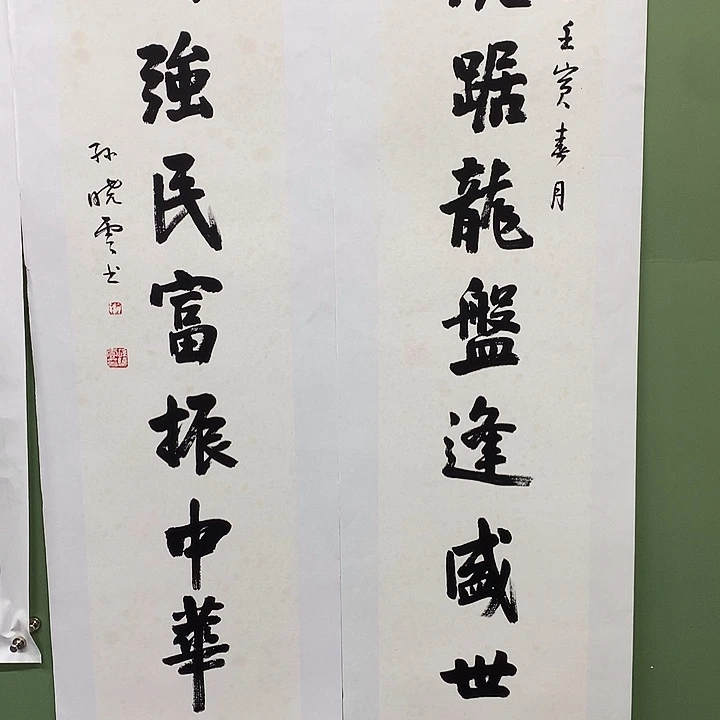 壬寅春月
踞龍盤逢盛世
強民富振中華
孙晓雲书